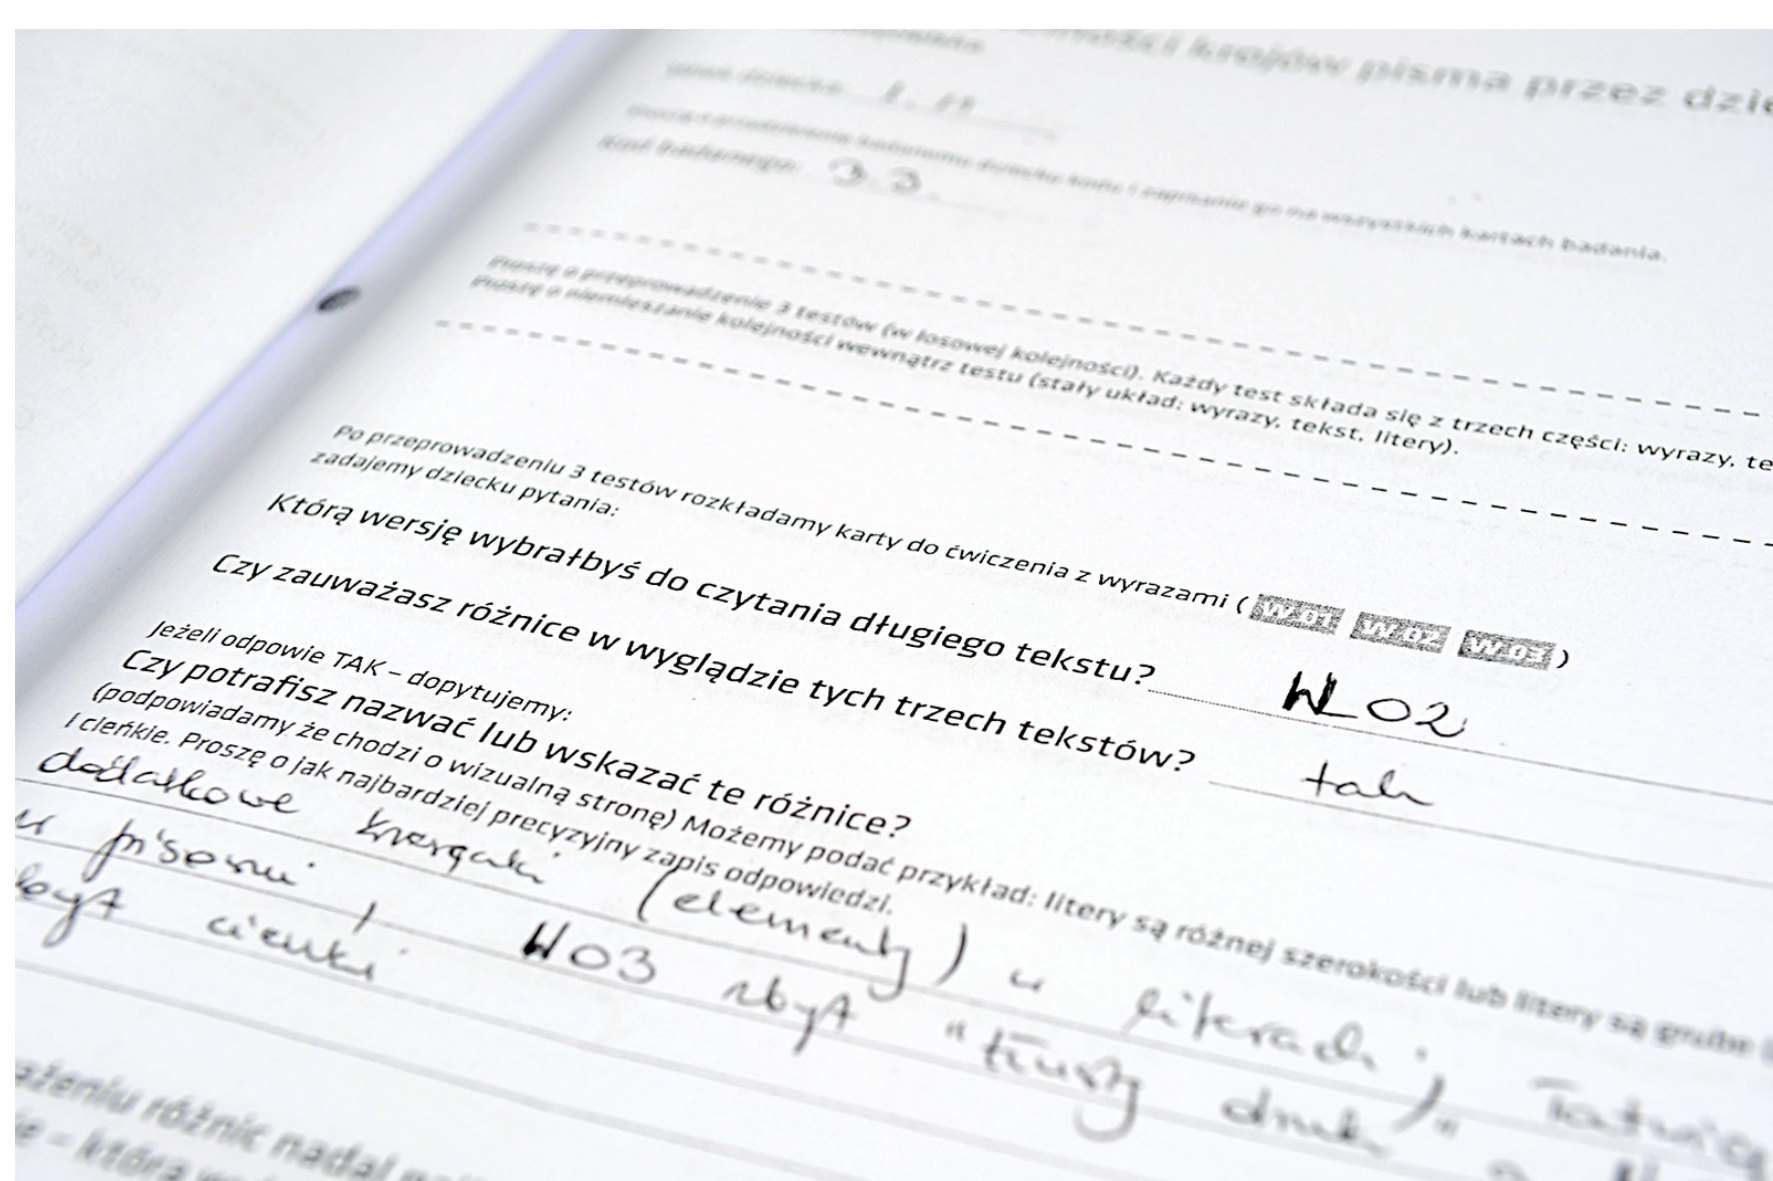 krojów pisma przez dzie
Kod badanego: 3.3.
Proszę o przeprowadzenie 3 testów (w losowej kolejności). Każdy test składa się z trzech części: wyrazy, te
Proszę o niemieszanie kolejności wewnątrz testu (stały układ: wyrazy, tekst, litery).
Po przeprowadzeniu 3 testów rozkładamy karty do ćwiczenia z wyrazami ( W.01 W.02 W.03 )
zadajemy dziecku pytania:
Którą wersję wybrałbyś do czytania długiego tekstu? W 02
Czy zauważasz różnice w wyglądzie tych trzech tekstów? tak
Jeżeli odpowie TAK – dopytujemy:
Czy potrafisz nazwać lub wskazać te różnice?
(podpowiadamy że chodzi o wizualną stronę) Możemy podać przykład: litery są różnej szerokości lub litery są grube
i cieńkie. Proszę o jak najbardziej precyzyjny zapis odpowiedzi.
dodatkowe (elementy) w literach,
w W03 zbyt "tłusty druk"
zbyt cienki
różnic nadal
– która